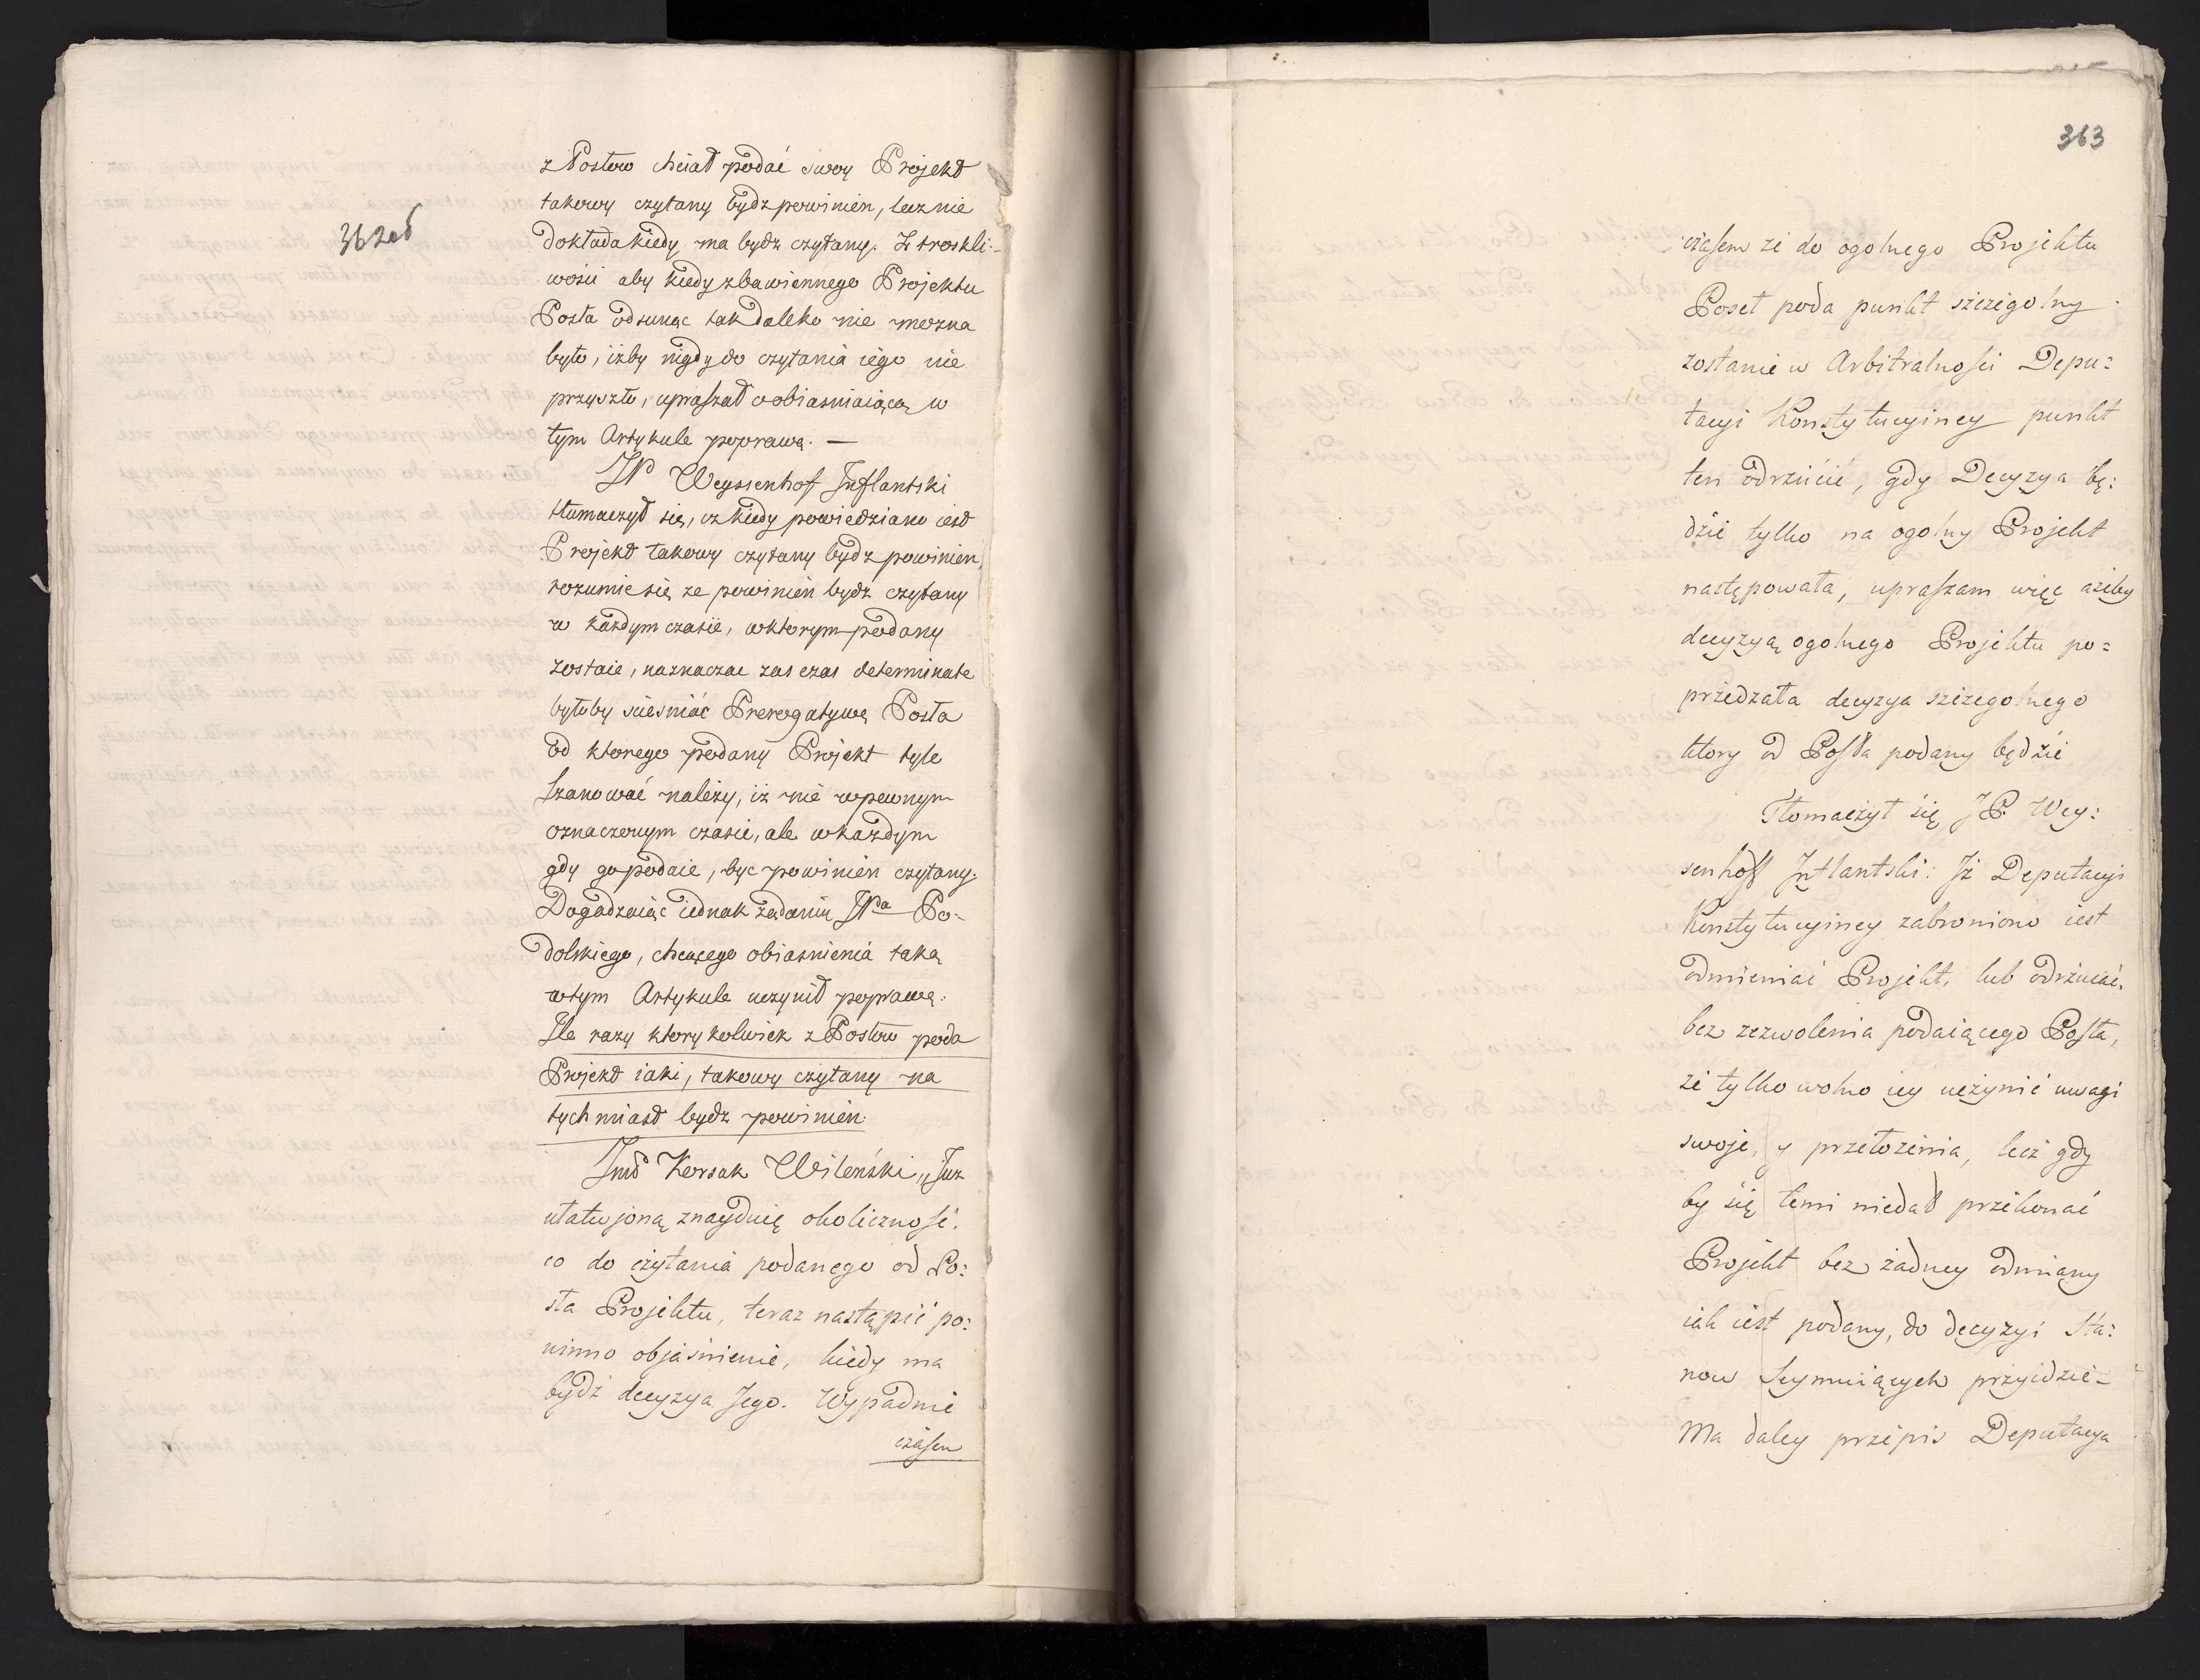 z Posłow chciał podać swoy Projekt
takowy czytany bydz powinien, lecz nie
dokłada kiedy ma bydz czytany. Z troskli-
wości aby kiedy zbawiennego Projektu
Posła odsunąc tak daleko nie mozna
było, iżby nigdy do czytania iego nie
przyszło, upraszał o obiasniaiącą w
tym Artykule poprawą. —
JP Weyssenhof Inflantski
tłumaczył się, iz kiedy powiedziano iest
Projekt takowy czytany bydz powinien,
rozumie się ze powinien bydz czytany
w każdym czasie, w ktorym podany
zostaie, naznaczac zas czas determinate
byłoby sciesniać Prerogatywę Posła
od ktorego podany Projekt tyle
szanować należy, iż nie w pewnym
oznaczonym czasie, ale w kazdym
gdy go podaie, byc powinien czytany.
Dogadzaiąc iednak żądaniu JPa Po-
dolskiego, chcącego obiasnienia taką
w tym Artykule uczynił poprawę.
Ile razy ktorykolwiek z Posłow poda
Projekt iaki, takowy czytany na
tychmiast bydz powinien.
Jmć Korsak Wileński, „Juz
ułatwioną znayduię okoliczność.
co do czytania podanego od Po:
sła Projektu, teraz nastąpić po:
winno objaśnienie, kiedy ma
bydź decyzya Jego. Wypadnie
czasem
362ab
363
czasem że do ogolnego Projektu
Poseł poda punkt szczegolny
zostanie w Arbitralności Depu:
tacyi Konstytucyiney punkt
ten odrzucić, gdy Decyzya bę:
dzie tylko na ogolny Projekt
następowała, upraszam więc ażeby
decyzyą ogolnego Projektu po:
przedzała decyzya szczegolnego
ktory od Posła podany będzie
Tłomaczył się JP. Wey:
senhoff Inflantski: Iż Deputacyi
Konstytucyiney zabroniono iest
odmieniać Projekt, lub odrzucać,
bez zezwolenia podaiącego Posła,
że tylko wolno iey uczynić uwagi
swoje, y przełożenia, lecz gdy
by się temi niedał przekonać
Projekt bez żadney odmiany
iak iest podany, do decyzyi Sta:
now Seymuiących przyidzie –
Ma daley przepis Deputacya